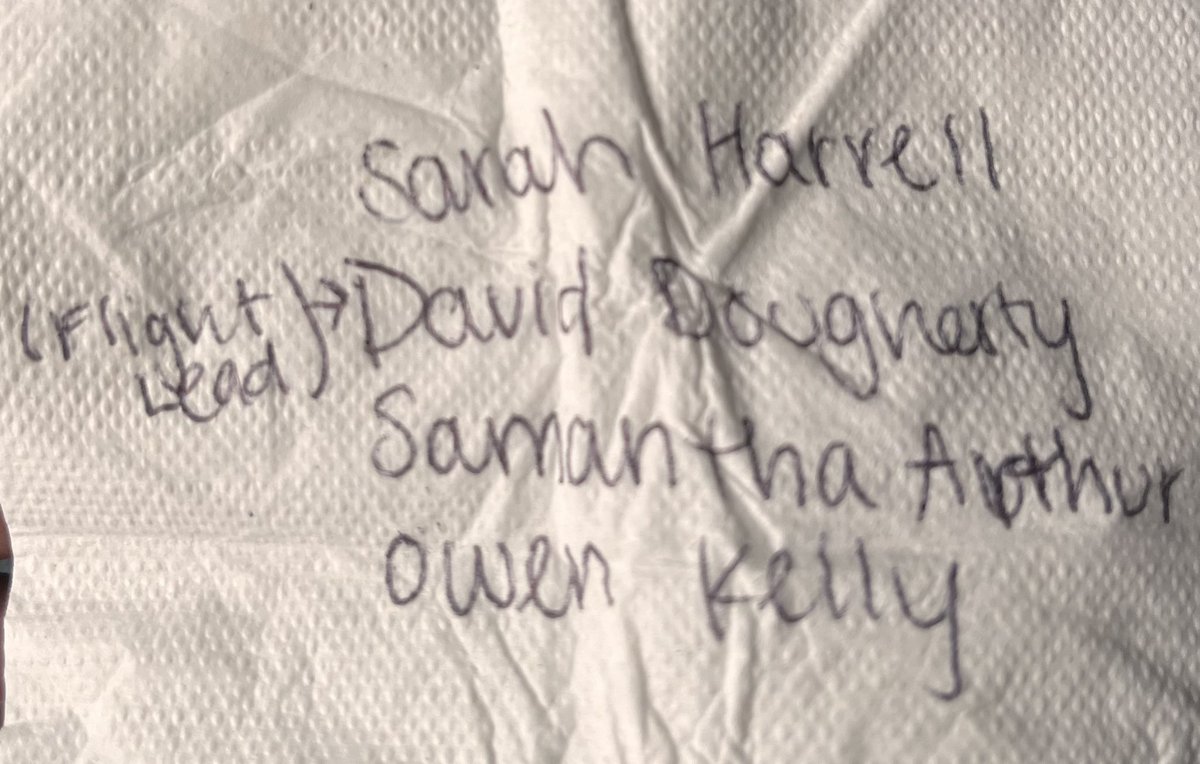 Sarah Harrell
(Flight Lead) → David Dougherty
Samantha Arthur
Owen Kelly